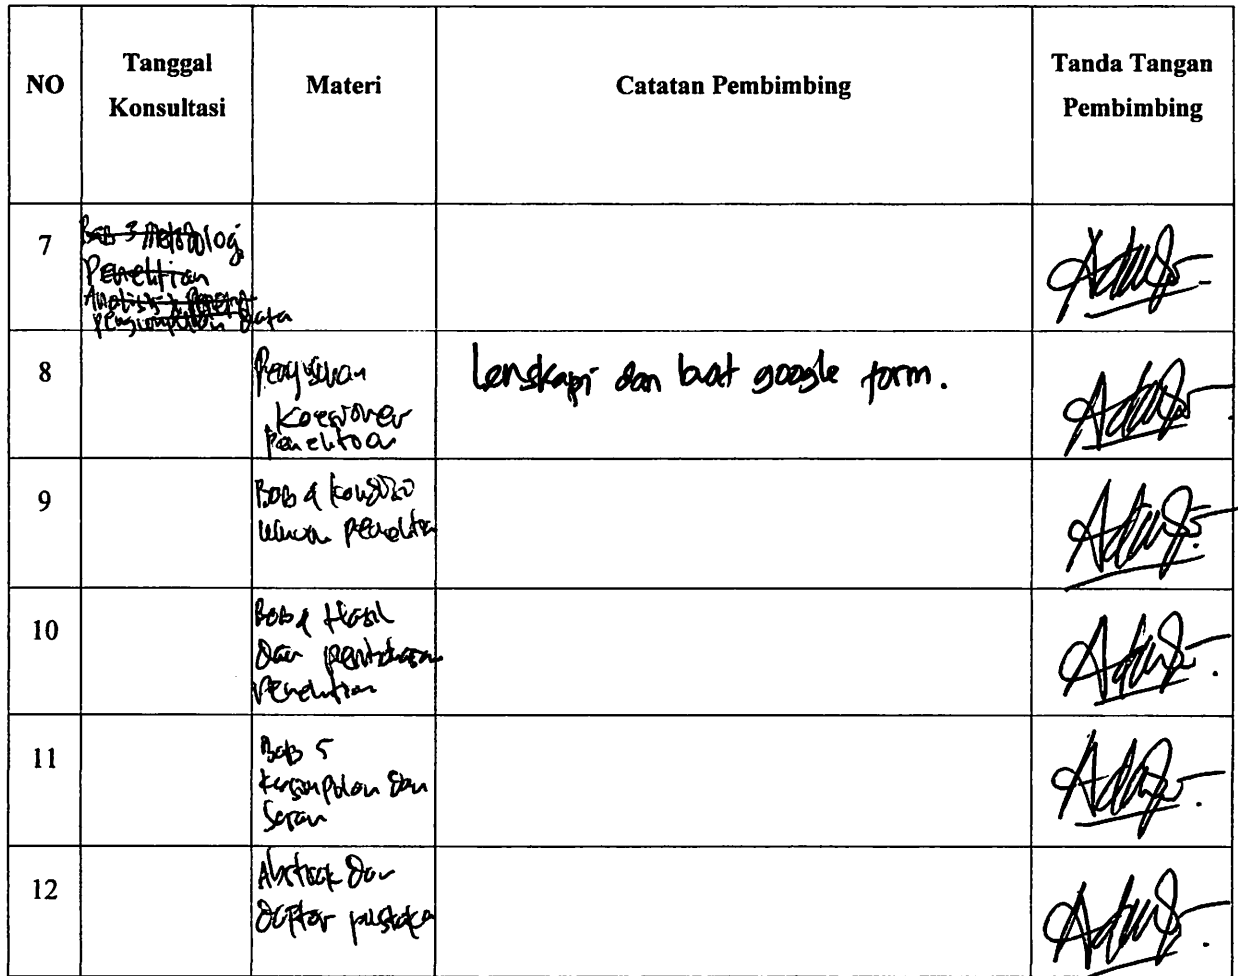 NO
Tanggal
Konsultasi
Materi
Catatan Pembimbing
Tanda Tangan
Pembimbing
7
Bab 3 Metodologi
Penelitian
Data
8
Penyusunan
Koesioner
Penelitian
Lengkapi dan buat google form.
9
Bab 4
Penelitian
10
Bab 4 Hasil
dan pembahasan
Penelitian
11
Bab 5
Kesimpulan dan
Saran
12
Abstrak dan
Daftar pustaka